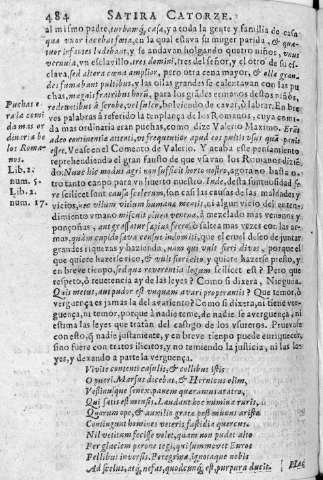 484 SATIRA CATORZE.
al mismo padre, turbamq́; casæ, y a toda la gente y familia de casa
qua vxor iacebat fœta, en la qual estaua su muger parida, & quæ-
tuor infantes ludebant, y se andauan holgando quatro niños, vnus
vernula, vn esclauillo, tres domini, tres del señor, y el otro de su es-
claua, sed altera cœna amplior, pero otra cena mayor, & ollæ gran-
des fumabant pultibus, y las ollas grandes se calentauan con las pu
chas, magnis fratribus horū, para los grandes ermanos destos niños,
redeuntibus à scrobe, vel sulco, boluiendo de cauar, ò labrar. En bre
ues palabras à referido la templança de los Romanos, cuya comi
da mas ordinaria eran puchas, como dize Valerio Maximo. Erāt
adeo continentiæ attenti, vt frequentior apud eos pultis vsus quā panis
esset. Vease en el Comento de Valerio. Y acaba este pensamiento
reprehendiendo el gran fausto de que vsauan los Romanos diziē-
do. Nunc hic modus agri non sufficit horto nostro, agora no basta nu
tro tanto campo para vn huerto nuestro. Inde, desta sumtuosidad se
vè scilicet sunt causæ scelerum, son
Puchas e
ra la comi
da mas or
dinaria de
los Roma-
nos.
Lib. 2.
num. 5.
Lib. 2.
num. 17.
vicios, nec vllum vitium humanæ mentis, ni algun vicio del enten-
dimiento vmano miscuit plura venena, à mezclado mas venenos y
ponçoñas, aut grassatur sæpius ferro, ò saltea mas vezes con las ar-
mas, quàm cupido sæua census indomiti, que el cruel deseo de juntar
grandes riquezas y hazienda, nam qui vult fieri diues, porque el
que quiere hazerse rico, & vult fieri citò, y quiere hazerse presto, y
en breue tiempo, sed quæ reuerentia legum scilicet est? Pero que
respeto, ò reuerencia ay de las leyes? Como si dixera, Ninguna.
Quis metus, aut pudor est vnquam auari properantis? Que temor, ò
verguença es jamas la del auariento? Como si dixera, ni tiene ver-
guença, ni temor, porque à nadie teme, de nadie se auerguença, ni
estima las leyes que tratan del castigo de los vsureros. Prueuase
con esto, q̃ nadie justamente, y en breue tiempo puede enriquecer,
sino fuere con tratos ilicitos, y no temiendo la justicia, ni las le-
yes, y dexando a parte la verguença.
Viuite contenti casulis, & collibus istis
O pueri, Marsus dicebat, & Hernicus olim,
Vestinusque senex, panem quæramus aratro,
Qui satis est mensis. Laudant hoc numina ruris,
Quorum ope, & auxilio gratæ post munus aristæ
Contingunt homines veteris fastidia quercus.
Nil vetitum fecisse volet, quem non pudet alto
Per glaciem perone tegi, qui summouet Euros
Pellibus inuersis. Peregrina, ignotaque nobis
Ad scelus, atq́; nefas, quodcumq́; est, purpura ducit.
Hæc